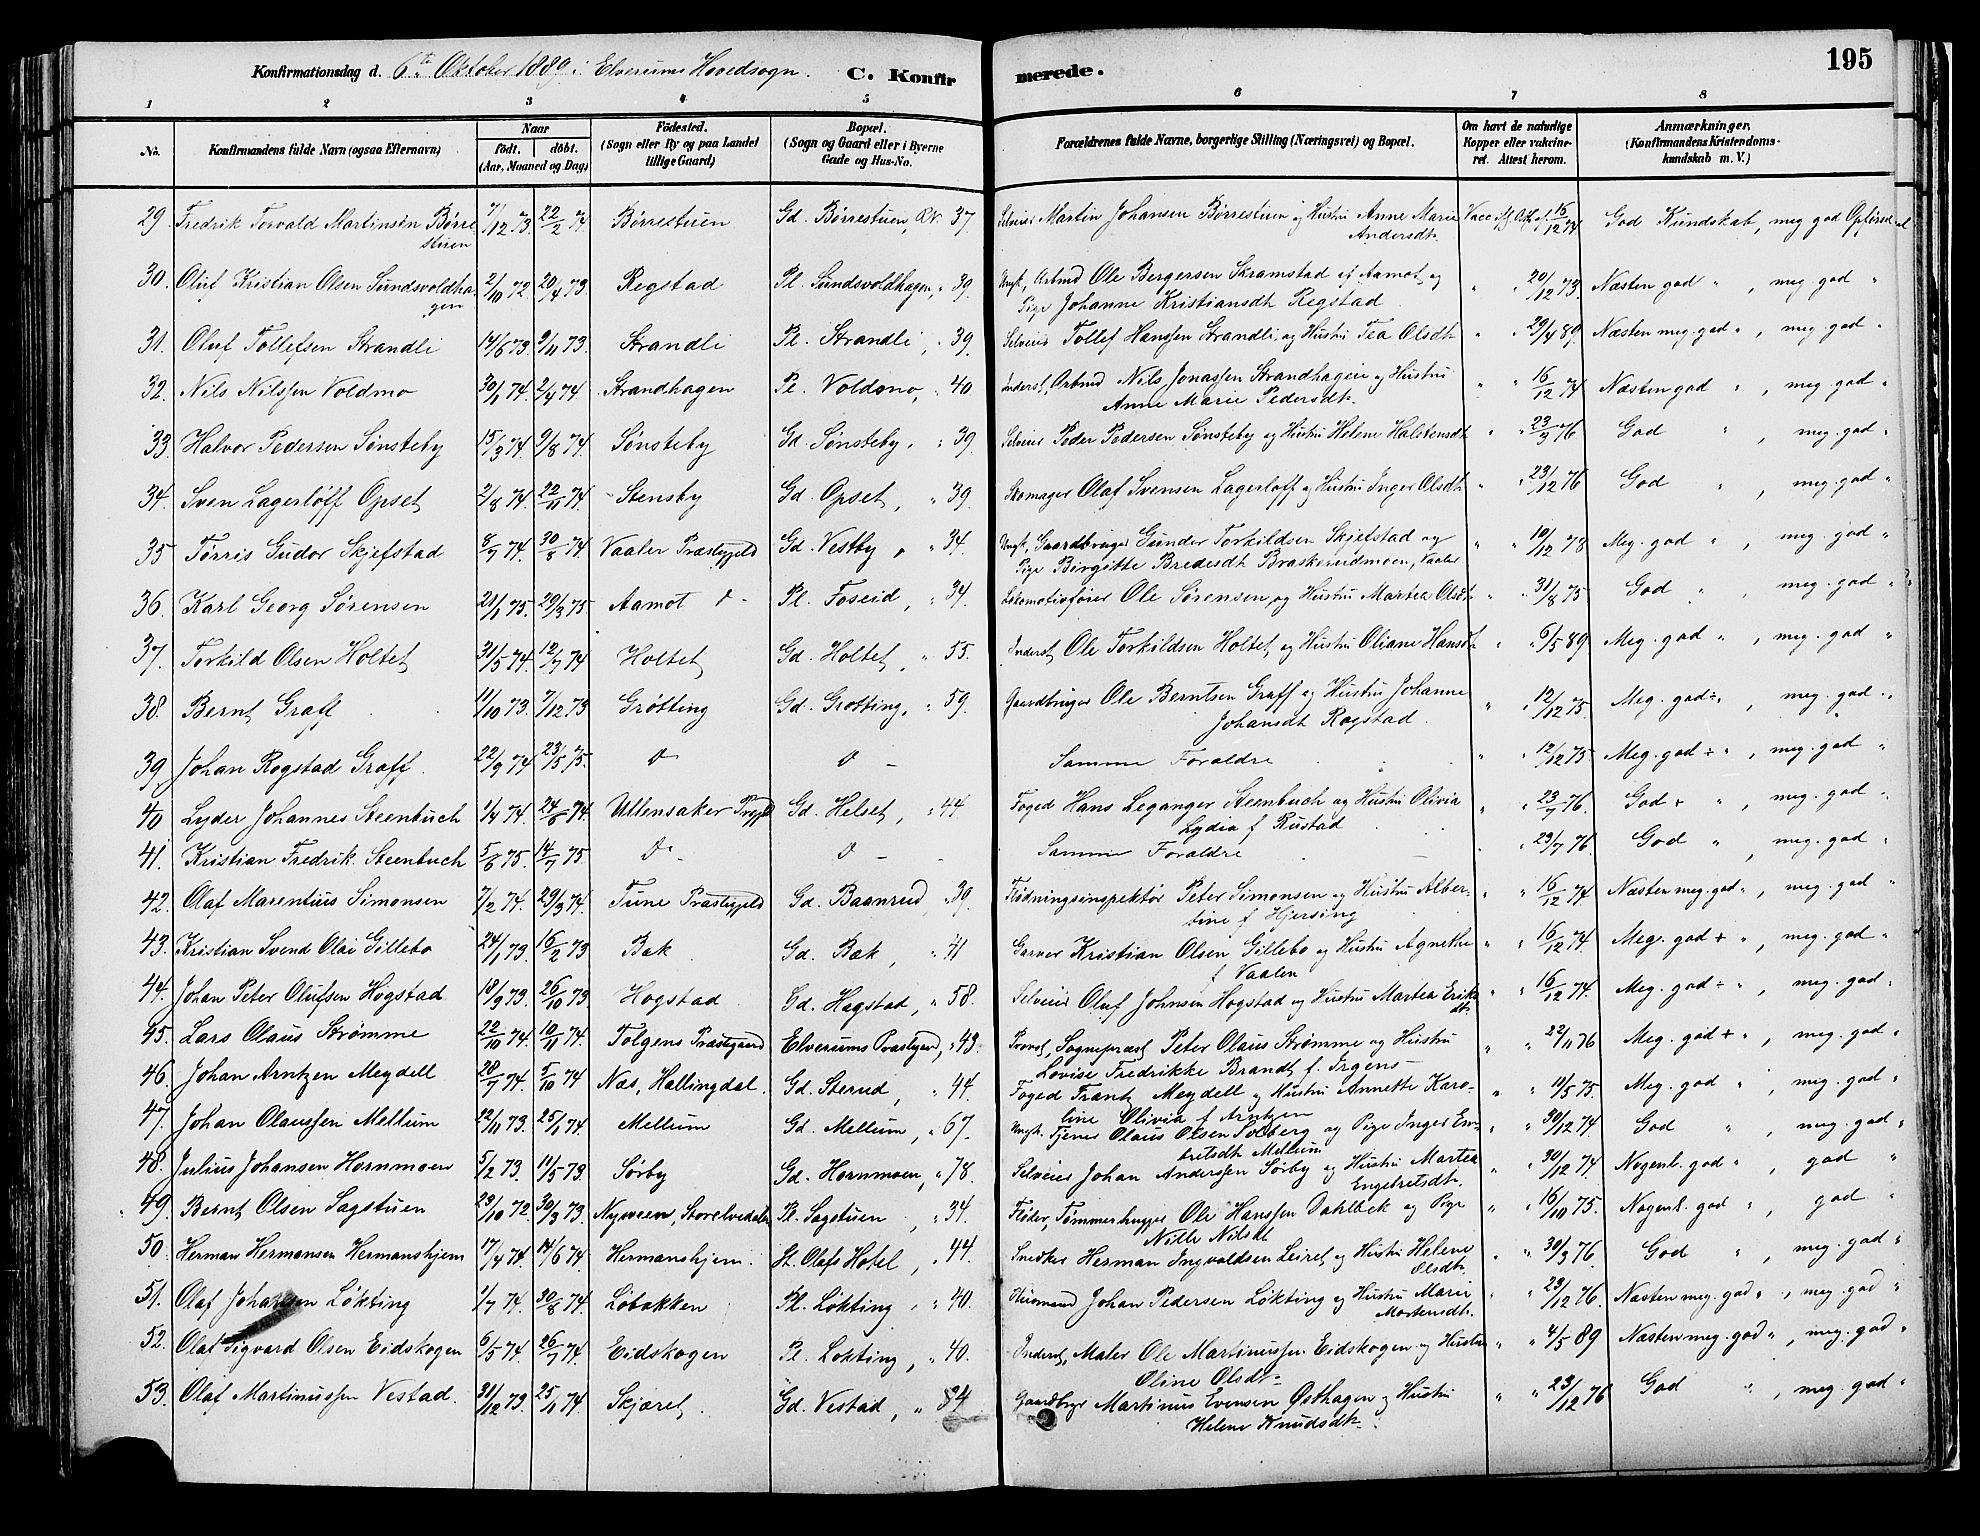 Konfirmationsdag d. 6te Oktober 1889 i Elverums Hovedsogn. C. Konfir merede. 195
1 2 3 4 5 6 7 8
No. Konfirmandens fulde Navn (ogsaa Efternavn) Naar født. døbt. (Aar, Maaned og Dag) Fødested. (Sogn eller By og paa Landet tillige Gaard) Bopæl. (Sogn og Gaard eller i Byerne Gade og Hus-No. Forældrenes fulde Navne, borgerlige Stilling (Næringsvei) og Bopæl. Om havt de naturlige Kopper eller vakcineret. Attest herom. Anmærkninger. (Konfirmandens Kristendomskundskab m. V.)
29. Fredrik Torvald Martinsen Børrestuen 7/12 73. 22/2 74. Børrestuen Gd. Børrestuen, RN. 37. Selveier Martin Johansen Børrestuen og Hustru Anne Marie Andersdt. Vacc. 15/12 74 God Kundskab, meg. god Opførsel
30. Oluf Kristian Olsen Sundsvoldhagen 2/10 72 20/4 73 Regstad Pl. Sundsvoldhagen, " 39. Ungk., Arbmd Ole Bergersen Skramstad af Aamot, og Pige Johanne Kristiansdt Regstad " " 20/12 73. Næsten god " , meg. god "
31. Oluf Tollefsen Strandli 14/6 73 9/11 73. Strandli Pl. Strandli, " 39. Selveier Tollef Hanssen Strandli og Hustru Tea Olsdt " " 29/4 89. Næsten meg. god " , meg. god "
32. Nils Nilssen Voldmo 30/1 74. 2/4 74 Strandhagen Pl. Voldmo, " 40 Inderst, Arbmd Nils Jonassen Strandhagen og Hustru Anne Marie Pedersdt. " " 16/12 74 Næsten god " , meg. god "
33. Halvor Pedersen Sønsteby 15/3 74. 9/8 74. Sønsteby Gd. Sønsteby, " 39. Selveier Peder Pedersen Sønsteby og Hustru Helene Halstensdt " " 23/7 76 God " , meg. god "
34. Sven Lagerløff Opset 2/8 74. 22/11 74. Stensby Gd. Opset, " 39 Skomager Olaf Svensen Lagerløff og Hustru Inger Olsdt " " 23/12 76 God " , meg. god "
35 Tørris Gudor Skjefstad 8/7 74. 30/8 74. Vaaler Præstegjeld Gd. Vestby, " 34. Ungk., Gaardbruger Gunder Torkildsen Skjefstad og Pige Birgitte Bredesdt Braskereidmoen, Vaaler " " 10/12 78 Meg. god " , meg. god "
36. Karl Georg Sørensen 21/1 75. 29/3 75 Aamot Do - Pl. Foseid, " 34. Lokomotivfører Ole Sørensen og Hustru Martea Olsdt. " " 31/8 75 God " , meg. god "
37. Torkild Olsen Holtet 31/5 74. 12/7 74 Holtet Gd. Holtet, " 55. Inderst Ole Torkildsen Holtet og Hustru Oliane Hansdt " " 6/5 89 Meg. god " , meg. god "
38. Bernt Graff 11/10 73. 7/12 73 Grøtting Gd. Grøtting, " 59. Gaardbruger Ole Berntsen Graff og Hustru Johanne Johansdt Rogstad " " 12/12 75. Meg. god ÷ " , meg. god "
39 Johan Rogstad Graff. 22/9 74 23/5 75. Do Do - Samme Forældre " " 12/12 75 Meg. god ÷ " , meg. god "
40 Lyder Johannes Steenbuch 1/4 74. 24/8 74. Ullensaker Prgjld Gd. Helset, " 44 Foged Hans Leganger Steenbuch og Hustru Olivia Lydia f. Rustad " " 23/7 76. God + " , meg. god "
41. Kristian Fredrik Steenbuch 5/6 75. 14/7 75 Do. Do - " - Samme Forældre " " 23/7 76. God " , meg. god "
42. Olaf Marentius Simonsen 7/2 74. 29/3 74. Tune Præstegjeld Gd. Baanrud, " 39. Flødningsinspektør Peter Simonsen og Hustru Albertine f. Hjersing " " 16/12 74 Næsten meg. god " , meg. god "
43. Kristian Svend Olai Gillebo 24/1 73. 16/2 73 Bæk Gd. Bæk, " 41 Garver Kristian Olsen Gillebo og Hustru Agnethe f. Vaalen " " 16/12 74. Meg. god ÷ " , meg. god "
44. Johan Peter Olufsen Hogstad 18/9 73. 26/10 73 Hogstad Gd. Hagstad, " 58. Selveier Oluf Johnsen Hogstad og Hustru Martea Eriksdt. " " 16/12 74. Meg. god ÷ " , meg. god "
45. Lars Olaus Strømme 22/10 74. 10/11 74. Tolgens Præstegaard Elverums Præstegrd, " 43. Provst, Sognepræst Peter Olaus Strømme og Hustru Lovise Fredrikke Brandt f. Irgens " " 22/11 76 Meg. god + " , meg. god "
46. Johan Arntzen Meydell 28/7 74. 5/10 74 Næs, Hallingdal. Gd. Sterud, " 44. Foged Frantz Meydell og Hustru Annette Karoline Olivia f. Arntzen " " 11/5 75. Meg. god " , meg. god "
47. Johan Olaussen Mellum 12/11 73. 25/1 74. Mellum Gd. Mellum, " 67. Ungk. Tjener Olaus Olsen Solberg og Pige Inger Embretsdt Mellum " " 30/12 74. God " , meg. god "
48. Julius Johansen Hornmoen 5/2 73 11/5 73. Sørby Gd. Hornmoen, " 78. Selveier Johan Andersen Sørby og Hustru Martea Engebretsdt. " " 30/12 74. Nogenl. god " , god "
49. Bernt Olsen Sagstuen 23/10 72. 30/3 73. Nyveen, Storelvedalen Pl. Sagstuen, " 34. Fløder, Tømmerhugger Ole Hanssen Dahlbæk og Pige Nille Nilsdt " " 16/10 75. Nogenl. god " , god "
50. Herman Hermansen Hermanshjem 17/4 74. 14/6 74. Hermanshjem. St. Olafs Hotel, " 44. Snedker Herman Ingvaldsen Leiret og Hustru Helene Olsdt. " " 30/3 76. God " , meg. god "
51. Olaf Johansen Løkting 1/7 74. 30/8 74. Løbakken Pl. Løkting, " 40. Husmand Johan Pedersen Løkting og Hustru Marie Mortensdt. " " 23/12 76. Næsten meg. god " , meg. god "
52. Olaf Sigvard Olsen Eidskogen 6/5 74. 26/7 74. Eidskogen Pl. Løkting, " 40. Inderst, Maler Ole Martinussen Eidskogen og Hustru Oline Olsdt. " " 4/5 89 Næsten meg. god " , meg. god "
53. Olaf Martinussen Vestad. 31/12 73. 25/1 74. Skjæret. Gd. Vestad, " 84 Gaardbrger Martinus Evensen Østhagen og Hustru Helene Knudsdt. " " 23/12 76 God " , meg. god "